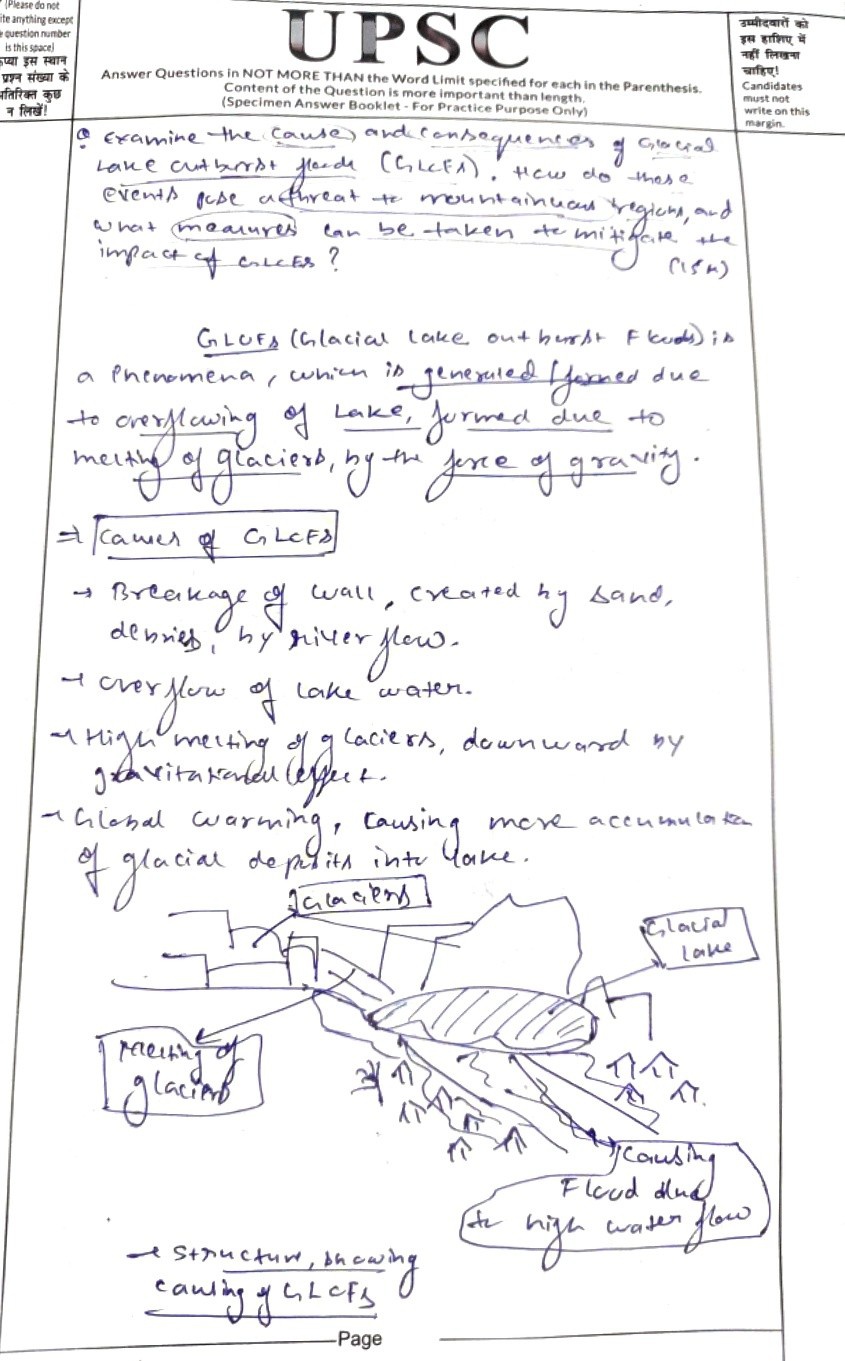 (Please do not
ite anything except
question number
is this space)
इस स्थान
प्रश्न संख्या के
तिरिक्त कुछ
न लिखें!
UPSC
Answer Questions in NOT MORE THAN the Word Limit specified for each in the Parenthesis.
Content of the Question is more important than length.
(Specimen Answer Booklet - For Practice Purpose Only)
उम्मीदवारों को
इस हाशिए में
नहीं लिखना
चाहिए!
Candidates
must not
write on this
margin.
Q Examine the cause and consequences of Glacial
Lake outburst floods (GLOFs). How do these
events pose a threat to mountainous regions, and
what measures can be taken to mitigate the
impact of GLOFs?
(15M)
GLOFs (Glacial Lake outburst Floods) is
a Phenomena, which is generated/formed due
to overflowing of Lake, formed due to
melting of glaciers, by the force of gravity.
⇒ Causes of GLOFS
→ Breakage of wall, created by sand,
debries, by river flow.
→ overflow of lake water.
→ High melting of glaciers, downward by
gravitational effect.
→ Global warming, causing more accumulation
of glacial deposits into lake.
Glaciers
Glacial
Lake
Melting of
glaciers
Causing
Flood due
to high water flow
→ Structure, showing
causing of GLOFS
Page